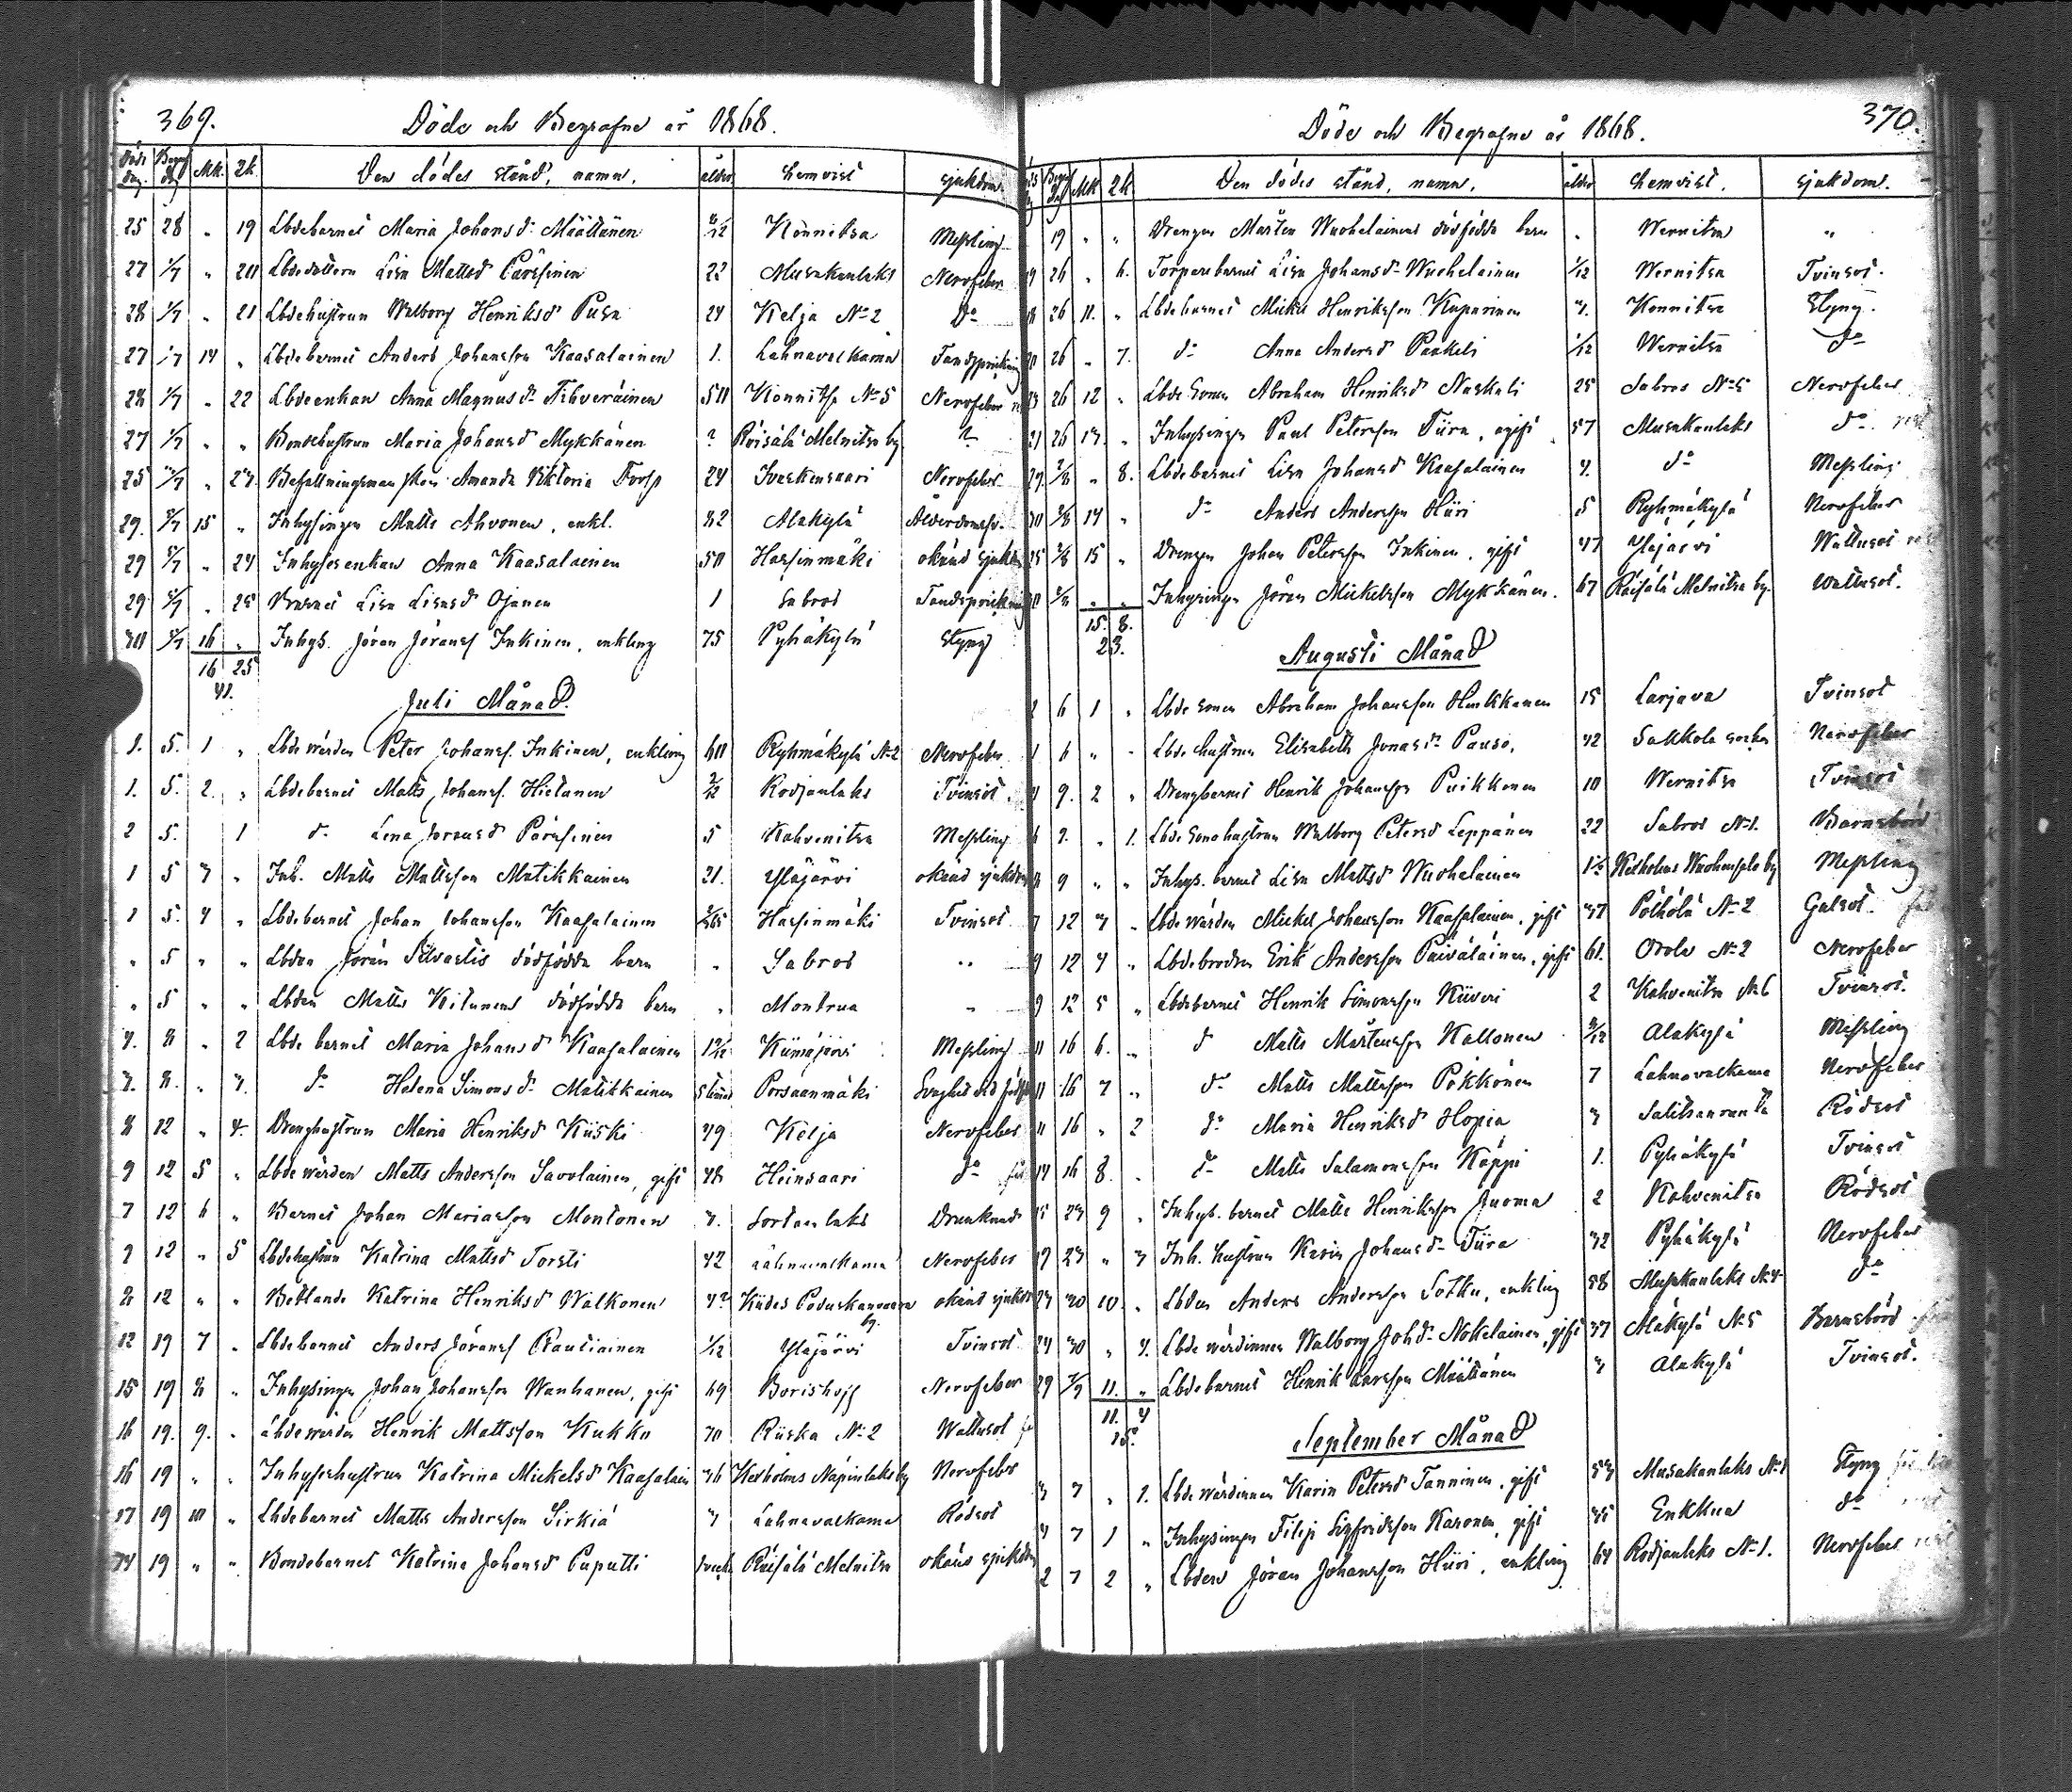 369.
Döde och Begrafne år 1868.
Död dag. Begr dag Mk. Qk. Den dödes stånd, namn. ålder hemvist sjukdom
25 28 " 19 Lbdebarnet Maria Johansdr Määttänen Konnitsa Messling
27 1/7 " 20 Lbdedottern Lisa Mattsd Pärssinen 22 Musakanlaks Nervfeber
28 1/7 " 21 Lbdehustrun Walborg Henriksd Pusa 24 Kelja No 2 do
27 1/7 14 " Lbdebarnet Anders Johansson Kaasalainen 1. Lahnavalkama Tandsprickning
28 1/7 " 22 Lbdeenkan Anna Magnusdr Tihveräinen 50 Konnitsa No 5 Nervfeber
27 1/7 " " Bondehustrun Maria Johansd Mykkänen ? Räisälä Melnitsa by ?
25 " 23. Befallningsman Amanda Viktoria 24 Ivaskensaari Nervfeber
29. 5/7 15 " Inhysingen Matts Ahvonen, enkl. 82 Alakylä Ålderdomsv.
29 5/7 " 24 Inhysesenkan Anna Kaasalainen 50 Hassinmäki okänd sjukdom
29 5/7 " 25 Barnet Lisa Lisasd Ojanen 1 Sabros Tandsprickning
30 5/7 16 " Inhys. Jöran Jöranss Inkinen, enkling 75 Pyhäkylä Styng
16 25
41.
Juli Månad.
1. 5. 1 " Lbdevärden Peter Johanss. Inkinen, enkling 60 Ryhmäkylä No 2 Nervfeber
1. 5. 2. " Lbdebarnet Matts Johanss. Hietanen Rodjanlaks Tvinsot.
2 5. 1 do Lena Joransd Pärssinen 5 Kahvenitsa Messling
1 5 3 " Inh. Matts Mattsson Matikkainen 21. Yläjärvi okänd sjukdom
1 5. 4 " Lbdebarnet Johan Johansson Kaasalainen Hassinmäki Tvinsot
" 5 " " Lbden Jöran Silvastis dödfödda barn " Sabros "
" 5 " " Lbden Matts Kitunens dödfödda barn " Montrua "
3. 8 " 2 Lbde barnet Maria Johansd Kaasalainen Kiimajärvi Messling
3. 8. " 3. do Helena Simonsdr Matikkainen Porsaanmäki Svaghet vid födseln
8 12 " 4. Drenghustrun Maria Henriksd Kiiski 49 Kelja Nervfeber
9 12 5 " Lbdevärden Matts Andersson Savolainen, gift 48 Heinsaari do
7 12 6 " Barnet Johan Mariasson Montonen 3. Sortanlaks Drunknade
9 12 " 5 Lbdehustrun Katrina Mattsd Torsti 42 Lahnavalkama Nervfeber
8 12 " " Betlande Katrina Henriksd Walkonen Kides Poduskanvaara by. okänd sjukdom
12 19 7 " Lbdebarnet Anders Jöranss Rautiainen 1/12 Yläjärvi Tvinsot
15 19 8 " Inhysingen Johan Johansson Wanhanen, gift 69 Borishoff Nervfeber
16 19. 9. " Lbdevärden Henrik Mattsson Kukko 70 Riiska No 2 Wattusot
16 19 " " Inhyseshustrun Katrina Mickelsd Kaasalain 36 Kexholms Näpinlaks by Nervfeber
17 19 10 " Lbdebarnet Matts Andersson Sirkiä 3 Lahnavalkama Rödsot
14 19 " " Bondebarnet Katrina Johansd Caputti Räisälä Melnitsa okänd sjukdom
370.
Döde och Begrafne år 1868.
Begr dag Mk Qk Den dödes stånd, namn. ålder hemvist. sjukdom.
19 " " Drengen Mårten Wuohelainens dödfödda barn " Wernitsa "
26 " 6. Torparebarnet Lisa Johansdr Wuohelainen 1/12 Wernitsa Tvinsot.
26 11. " Lbdebarnet Mickel Henriksson Kuparinen 3. Konnitsa Styng.
20 26 " 7. do Anna Andersd Paakeli 1/12 Wernitsa do
26 12 " Lbdesonen Abraham Henriksd Naskali 25 Sabros No 5 Nervfeber
21 26 13. " Inhysingen Paul Petersson Tiira, ogift 57 Musakanlaks do
2/8 " 8. Lbdebarnet Lisa Johansd Kaasalainen do Messling
30 2/8 14 " do Anders Andersson Hiiri 5 Ryhmäkylä Nervfeber
25 2/8 15 " Drengen Johan Petersson Inkinen, gift 47 Yläjärvi Wattusot
30 2/8 " " Inhysingen Jöran Mickelsson Mykkänen. 67 Räisälä Melnitsa by. Wattusot.
15. 8.
23.
Augusti Månad
1 6 1 " Lbde sonen Abraham Johansson Hinkkanen 15 Larjava Tvinsot
1 6 " " Lbde hustrun Elisabeth Jonasdr Pauso, 42 Sakkola socken Nervfeber
9. 2 " Drengbarnet Henrik Johansson Puikkonen 10 Wernitsa Tvinsot
6 9. " 1. Lbde Sonehustrun Walborg Petersd Leppänen 22 Sabros No 1. Barnsbörd
9 " " Inhys. barnet Lisa Mattsd Wuohelainen Kexholms by Messling
7 12 3 " Lbde värden Mickel Johansson Kaasalainen, gift 37 Pölhölä No 2 Gulsot.
9 12 4 " Lbdebrodren Erik Andersson Päiväläinen, gift 61. Orola No 2 Nervfeber
9 12 5 " Lbdebarnet Henrik Simonsson Kiiveri 2 Kahvenitsa No 6 Tvinsot.
11 16 6. " d Matts Mårtensson Kallonen Alakylä Messling
11 16 7 " do Matts Mattsson Pökkönen 7 Lahnavalkama Nervfeber
11 16 " 2 do Maria Henriksd Hopia 3 Salitsanranta Rödsot
14 16 8. " do Matts Salamonsson Käppi 1. Pyhäkylä Tvinsot
15 23 9 " Inhys. barnet Matts Henriksson Juoma 2 Kahvenitsa Rödsot
19 23 " 3 Inh. hustrun Karin Johansdr Tiira 32 Pyhäkylä Nervfeber
23 30 10. " Lbden Anders Andersson Lotku, enkling 58 Musakanlaks No 4 do
24 30 " 4. Lbde värdinnan Walborg Johdr Nokelainen, gift 37 Alakylä No 5 Barnsbörd
29 11. " Lbdebarnet Henrik Larsson Määttänen 3 Alakylä Tvinsot.
11. 4
15.
September Månad
3 7 " 1. Lbde värdinnan Karin Petersd Tanninen, gift 53 Musakanlaks No 1 Styng
3 7 1 " Inhysingen Filip Sigfridsson Karonen, gift 35 Enkkua do
2 7 2 " Lbden Jöran Johansson Hiiri, enkling 64 Rodjanlaks No 1. Nervfeber